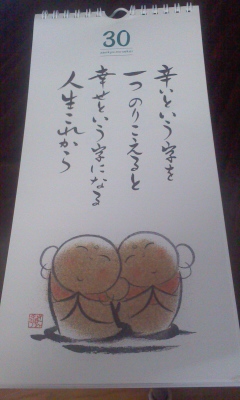 30
辛いという字を
一つのりこえると
幸せという字になる
人生これから